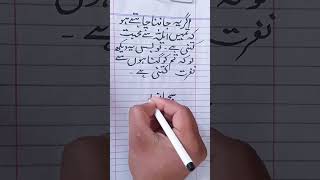 اگر یہ جاننا چاہتے ہو
کہ تمہیں اللہ سے محبت
کتنی ہے۔ تو بس یہ دیکھ
لو کہ تم کو گناہوں سے
نفرت کتنی ہے۔